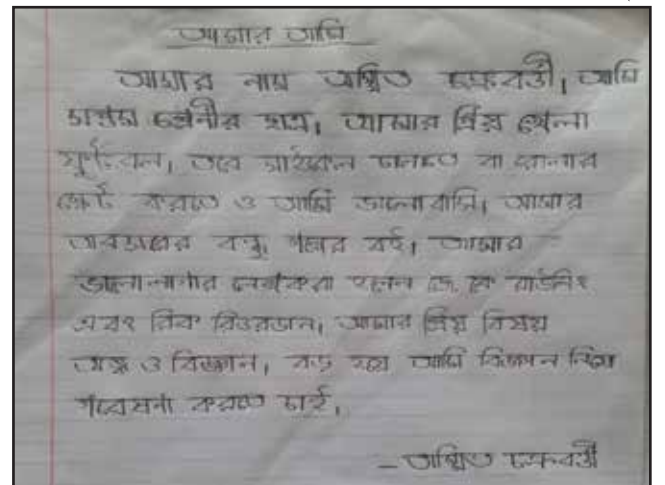 আমার আমি
আমার নাম অস্মিত চক্রবর্তী, আমি
সপ্তম শ্রেনীর ছাত্র, আমার প্রিয় খেলা
ফুটবল, তবে সাইকেল চালাতে বা রোলার
স্কেট করতে ও আমি ভালোবাসি, আমার
অবসরের বন্ধু গল্পের বই, আমার
ভালোলাগার লেখকরা হলেন জে কে রাউলিং
এবং রিক রিওরডান, আমার প্রিয় বিষয়
অঙ্ক ও বিজ্ঞান, বড় হয়ে আমি বিজ্ঞান নিয়ে
গবেষনা করতে চাই,
– অস্মিত চক্রবর্তী